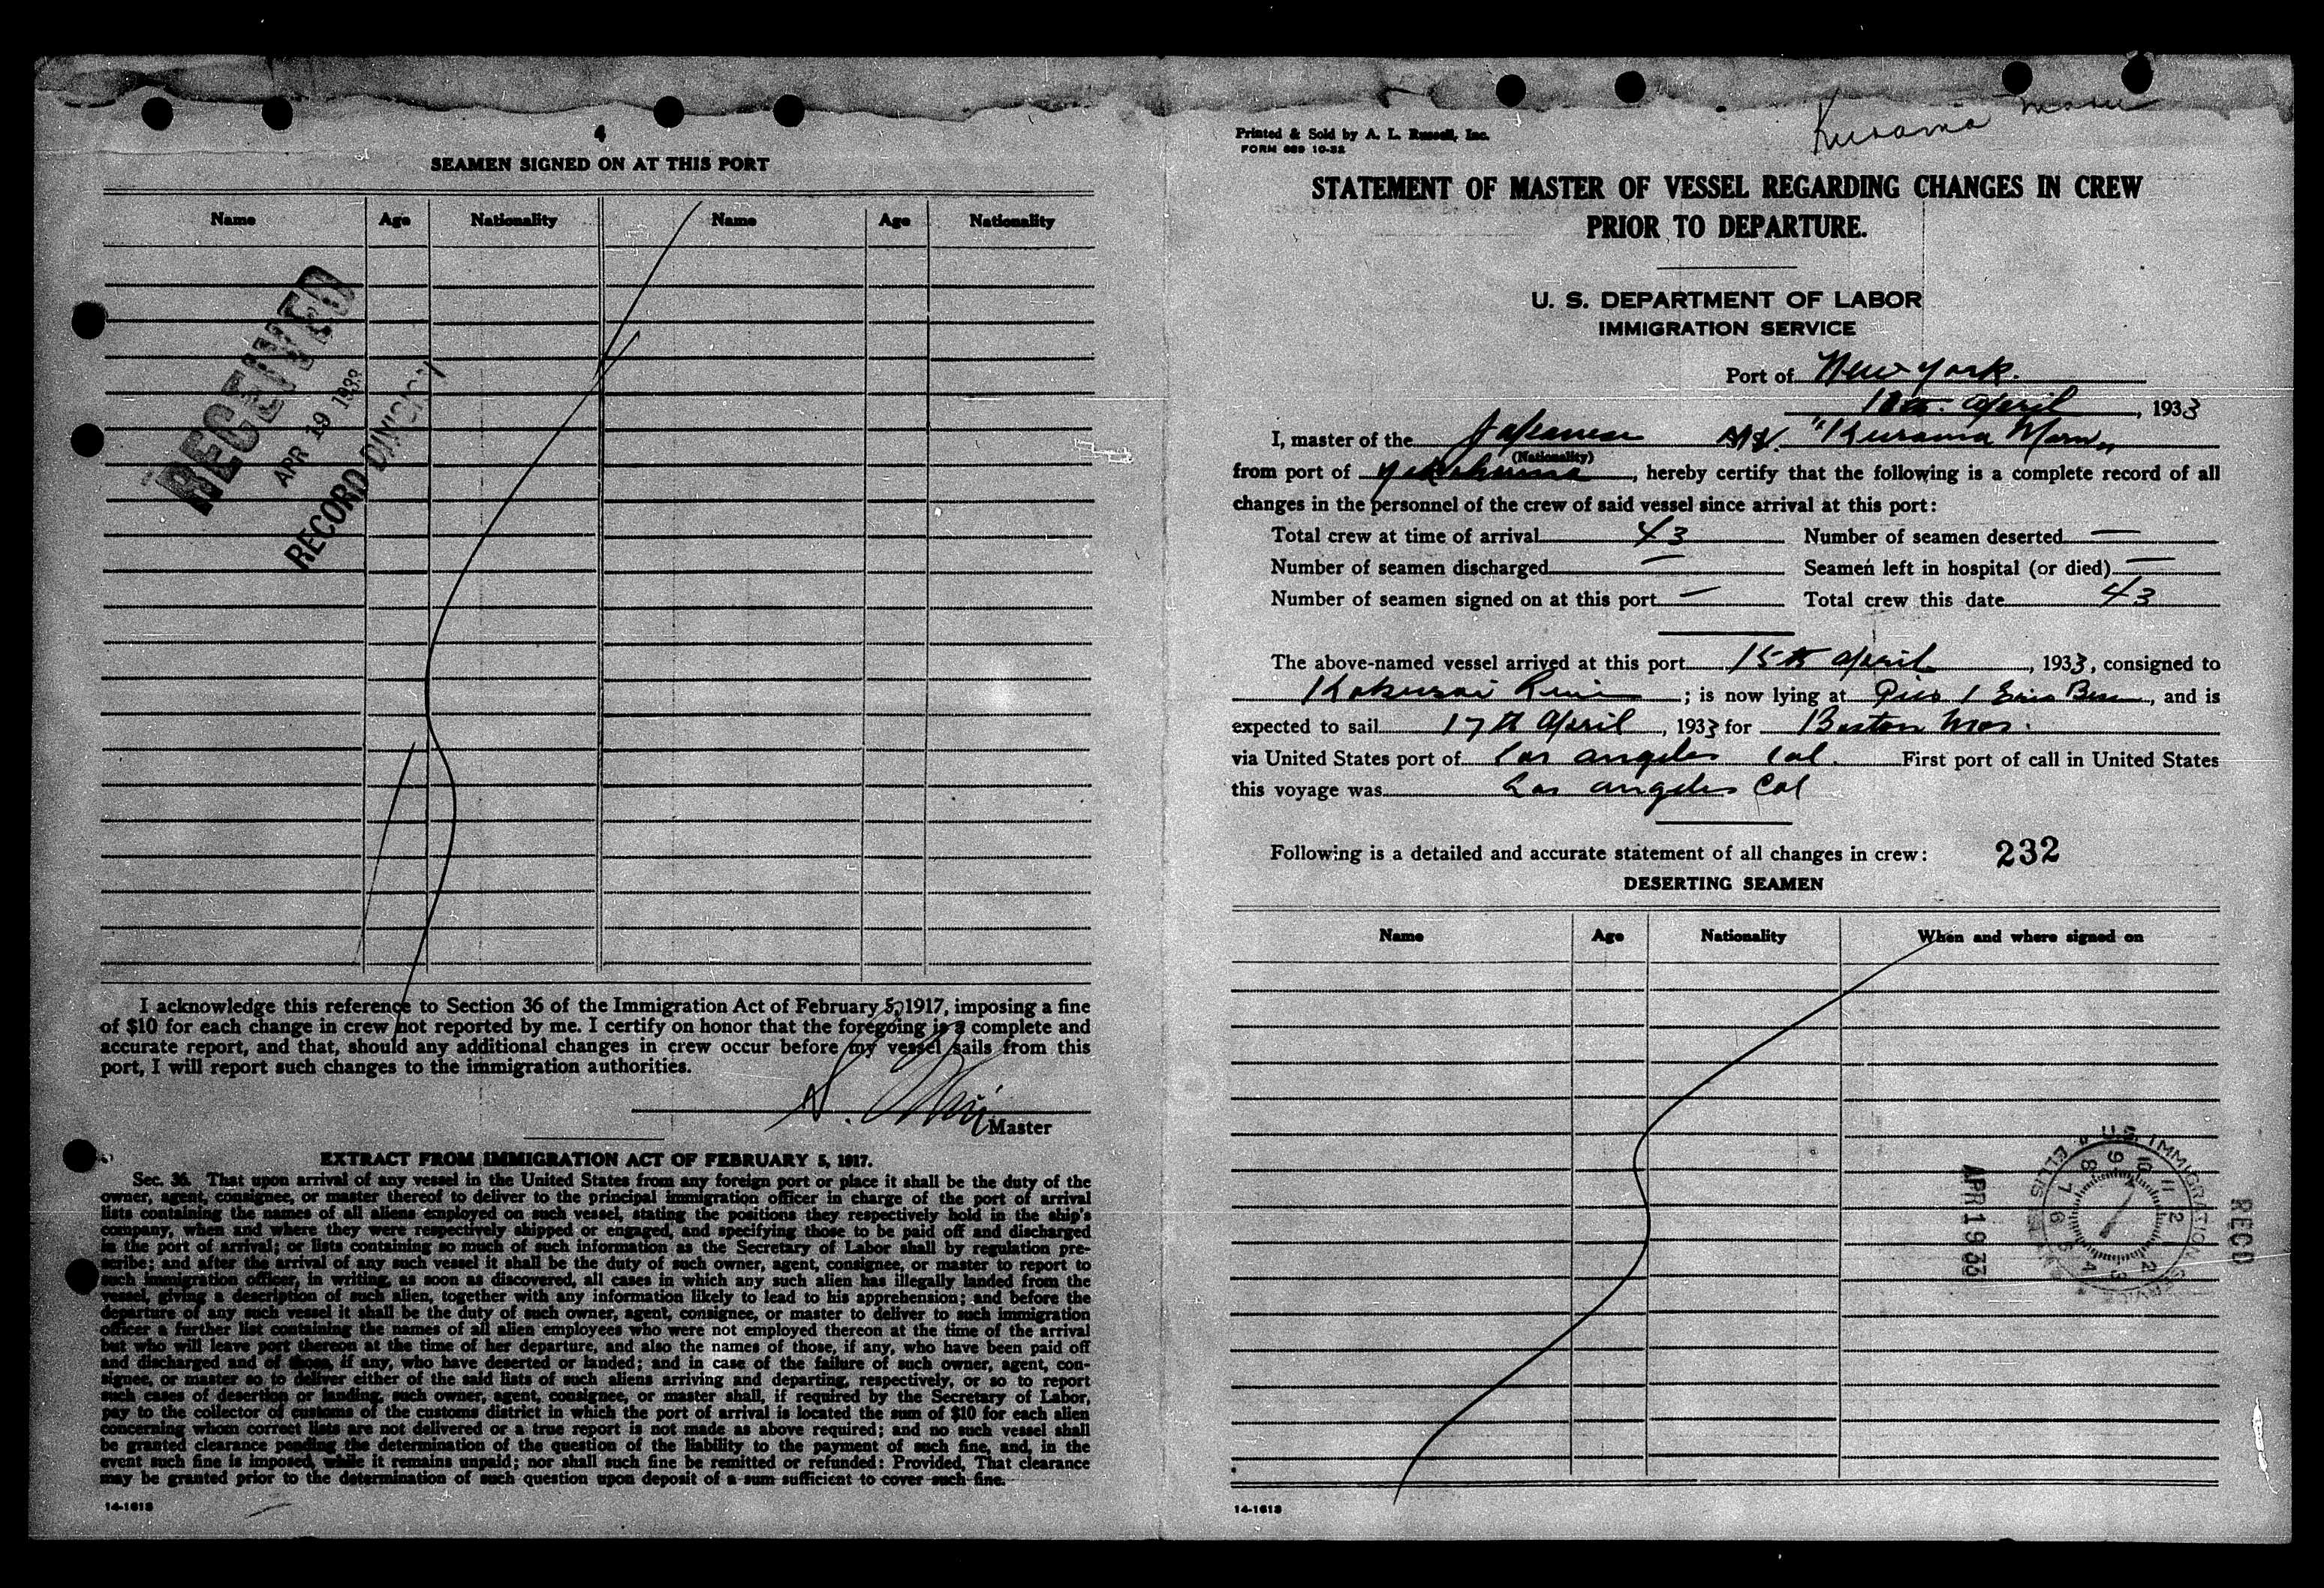 4
SEAMEN SIGNED ON AT THIS PORT
Name Age Nationality Name Age Nationality
RECEIVED
APR 19 1933
RECORD DIVISION
I acknowledge this reference to Section 36 of the Immigration Act of February 5, 1917, imposing a fine
of $10 for each change in crew not reported by me. I certify on honor that the foregoing is a complete and
accurate report, and that, should any additional changes in crew occur before my vessel sails from this
port, I will report such changes to the immigration authorities.
Master
EXTRACT FROM IMMIGRATION ACT OF FEBRUARY 5, 1917.
Sec. 36. That upon arrival of any vessel in the United States from any foreign port or place it shall be the duty of the
owner, agent, consignee, or master thereof to deliver to the principal immigration officer in charge of the port of arrival
lists containing the names of all aliens employed on such vessel, stating the positions they respectively hold in the ship's
company, when and where they were respectively shipped or engaged, and specifying those to be paid off and discharged
in the port of arrival; or lists containing so much of such information as the Secretary of Labor shall by regulation pre-
scribe; and after the arrival of any such vessel it shall be the duty of such owner, agent, consignee, or master to report to
such immigration officer, in writing, as soon as discovered, all cases in which any such alien has illegally landed from the
vessel, giving a description of such alien, together with any information likely to lead to his apprehension; and before the
departure of any such vessel it shall be the duty of such owner, agent, consignee, or master to deliver to such immigration
officer a further list containing the names of all alien employees who were not employed thereon at the time of the arrival
but who will leave port thereon at the time of her departure, and also the names of those, if any, who have been paid off
and discharged and of those, if any, who have deserted or landed; and in case of the failure of such owner, agent, con-
signee, or master so to deliver either of the said lists of such aliens arriving and departing, respectively, or so to report
such cases of desertion or landing, such owner, agent, consignee, or master shall, if required by the Secretary of Labor,
pay to the collector of customs of the customs district in which the port of arrival is located the sum of $10 for each alien
concerning whom correct lists are not delivered or a true report is not made as above required; and no such vessel shall
be granted clearance pending the determination of the question of the liability to the payment of such fine, and, in the
event such fine is imposed, while it remains unpaid; nor shall such fine be remitted or refunded: Provided, That clearance
may be granted prior to the determination of such question upon deposit of a sum sufficient to cover such fine.
14-1613
Kurama Maru
Printed & Sold by A. L. Russell, Inc.
FORM 689 10-32
STATEMENT OF MASTER OF VESSEL REGARDING CHANGES IN CREW
PRIOR TO DEPARTURE.
U. S. DEPARTMENT OF LABOR
IMMIGRATION SERVICE
Port of New York.
April, 1933
I, master of the Japanese "Kurama Maru"
(Nationality)
from port of Yokohama, hereby certify that the following is a complete record of all
changes in the personnel of the crew of said vessel since arrival at this port:
Total crew at time of arrival 43 Number of seamen deserted —
Number of seamen discharged — Seamen left in hospital (or died) —
Number of seamen signed on at this port — Total crew this date 43
The above-named vessel arrived at this port 15th April, 1933, consigned to
Kokusai ; is now lying at Pier 1 Erie , and is
expected to sail 17th April, 1933 for Boston Mas.
via United States port of Los Angeles Cal. First port of call in United States
this voyage was Los Angeles Cal
Following is a detailed and accurate statement of all changes in crew: 232
DESERTING SEAMEN
Name Age Nationality When and where signed on
U.S. IMMIGRATION SERVICE
ELLIS
APR 19 33
RECD
14-1613